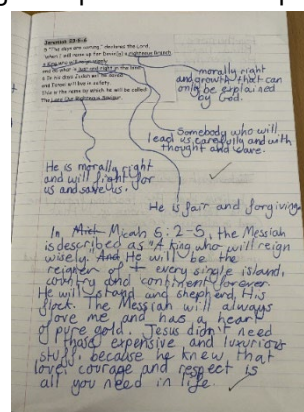 Jeremiah 23:5-6
5 "The days are coming," declares the Lord,
"when I will raise up for David[a] a righteous Branch,
a King who will reign wisely
and do what is just and right in the land.
6 In his days Judah will be saved
and Israel will live in safety.
This is the name by which he will be called:
The Lord Our Righteous Saviour.
morally right
and growth that can
only be explained
by God.
Somebody who will
lead us carefully and with
thought and care.
He is morally right
and will fight for
us and save us.
He is fair and forgiving
In Micah 5:2-5, the Messiah
is described as "A king who will reign
wisely." He will be the
reigner of every single island,
country and continent forever.
He will stand and shepherd His
flock. The Messiah will always
love me and has a heart
of pure gold. Jesus didn't need
those expensive and luxurious
stuff, because he knew that
love, courage and respect is
all you need in life.